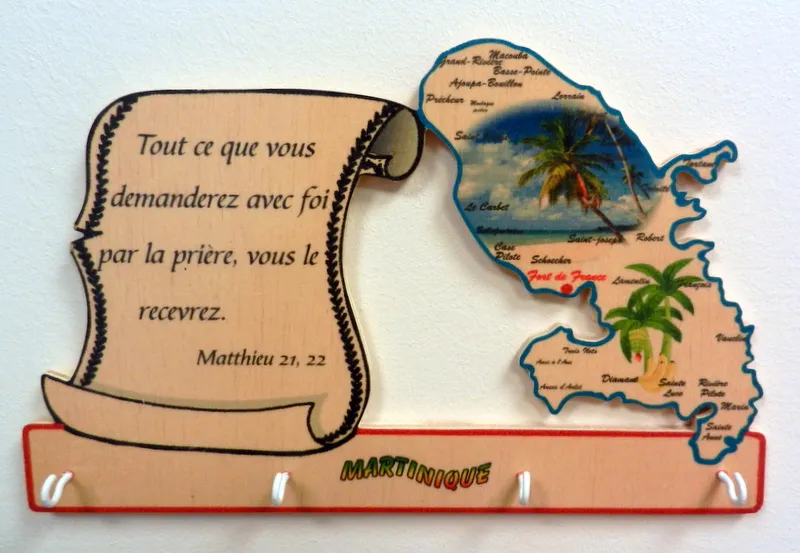 Tout ce que vous
demanderez avec foi
par la prière, vous le
recevrez.
Matthieu 21, 22
Macouba
Grand-Rivière
Basse-Pointe
Ajoupa-Bouillon
Prêcheur
Lorrain
Trinité
Le Carbet
Saint-joseph
Robert
Case
Pilote
Schoecher
Fort de France
Lamentin
François
Vauclin
Trois Ilets
Anses d'Arlet
Diamant
Sainte
Luce
Rivière
Pilote
Marin
Sainte
Anne
MARTINIQUE